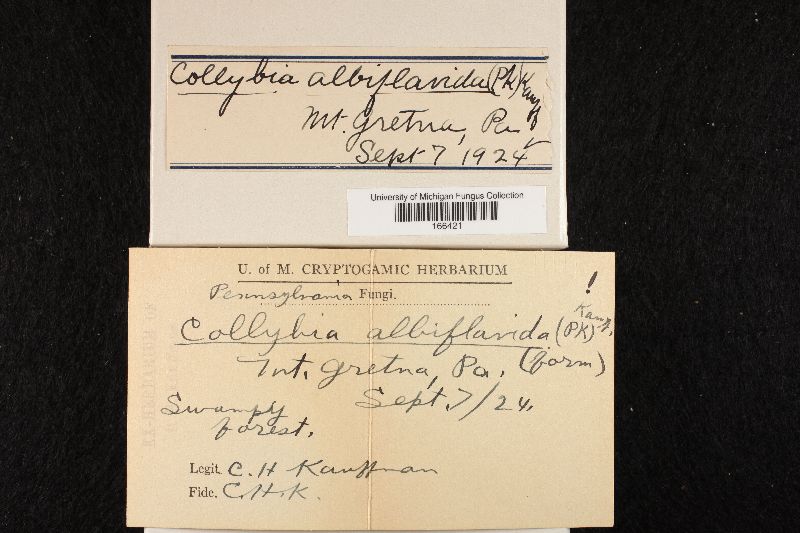 Collybia albiflavida (Pk) Kauff
Mt. Gretna, Pa
Sept 7 1924
University of Michigan Fungus Collection
166421
U. of M. CRYPTOGAMIC HERBARIUM
!
Pennsylvania Fungi.
Collybia albiflavida (PK) Kauf.
Mt. Gretna, Pa. (form)
Swampy Sept. 7/24.
forest.
Legit. C. H Kauffman
Fide. C. H. K.